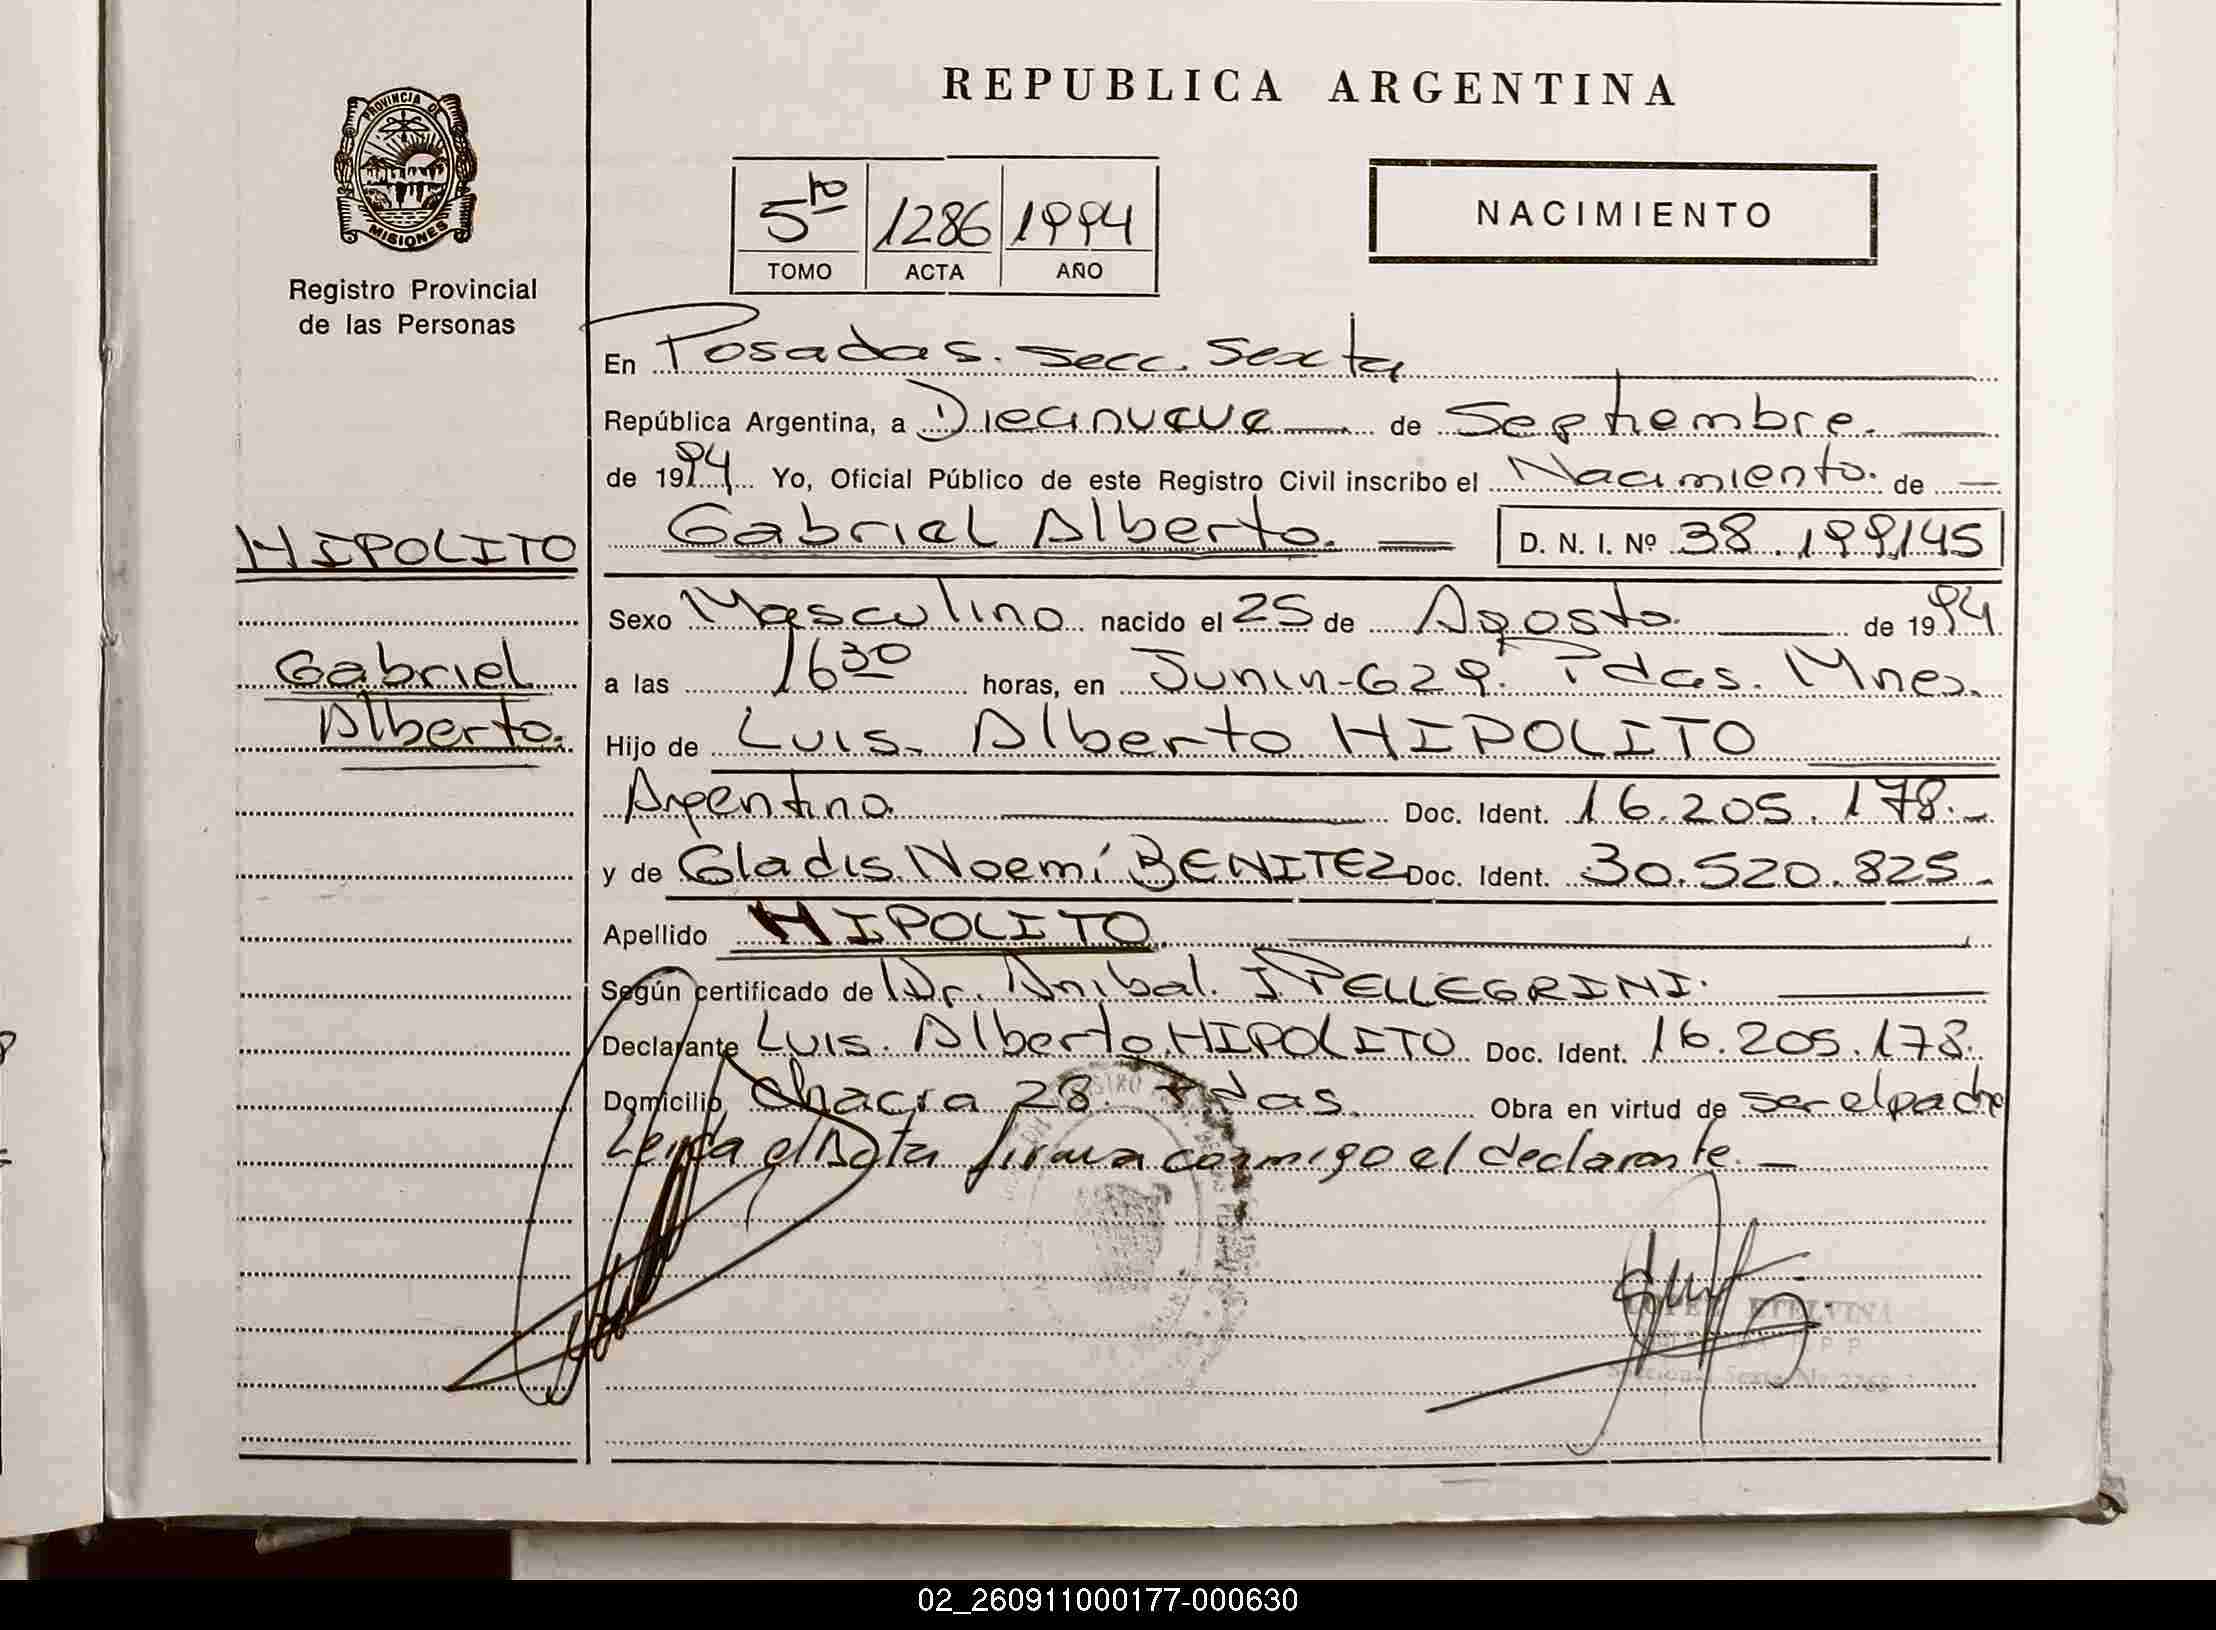 REPUBLICA ARGENTINA
PROVINCIA DE
MISIONES
Registro Provincial
de las Personas
5to 1286 1994
TOMO ACTA AÑO
NACIMIENTO
En Posadas. secc. Sexta
República Argentina, a Diecinueve de Septiembre.
de 1994 Yo, Oficial Público de este Registro Civil inscribo el Nacimiento. de
HIPOLITO
Gabriel Alberto. D. N. I. Nº 38.199145
Sexo Masculino nacido el 25 de Agosto. de 1994
Gabriel
a las 16 30 horas, en Junin-629. Pdas. Mnes.
Alberto.
Hijo de Luis. Alberto HIPOLITO
Argentino. Doc. Ident. 16.205.178.
y de Gladis Noemí BENITEZ Doc. Ident. 30.520.825.
Apellido HIPOLITO
Según certificado de Dr. Anibal. J. PELLEGRINI.
Declarante Luis. Alberto HIPOLITO Doc. Ident. 16.205.178.
Domicilio Chacra 28. Pdas. Obra en virtud de ser el padre
Leida el Acta firma conmigo el declarante.
ETELVINA
Seccional Sexta Nº
02_260911000177-000630